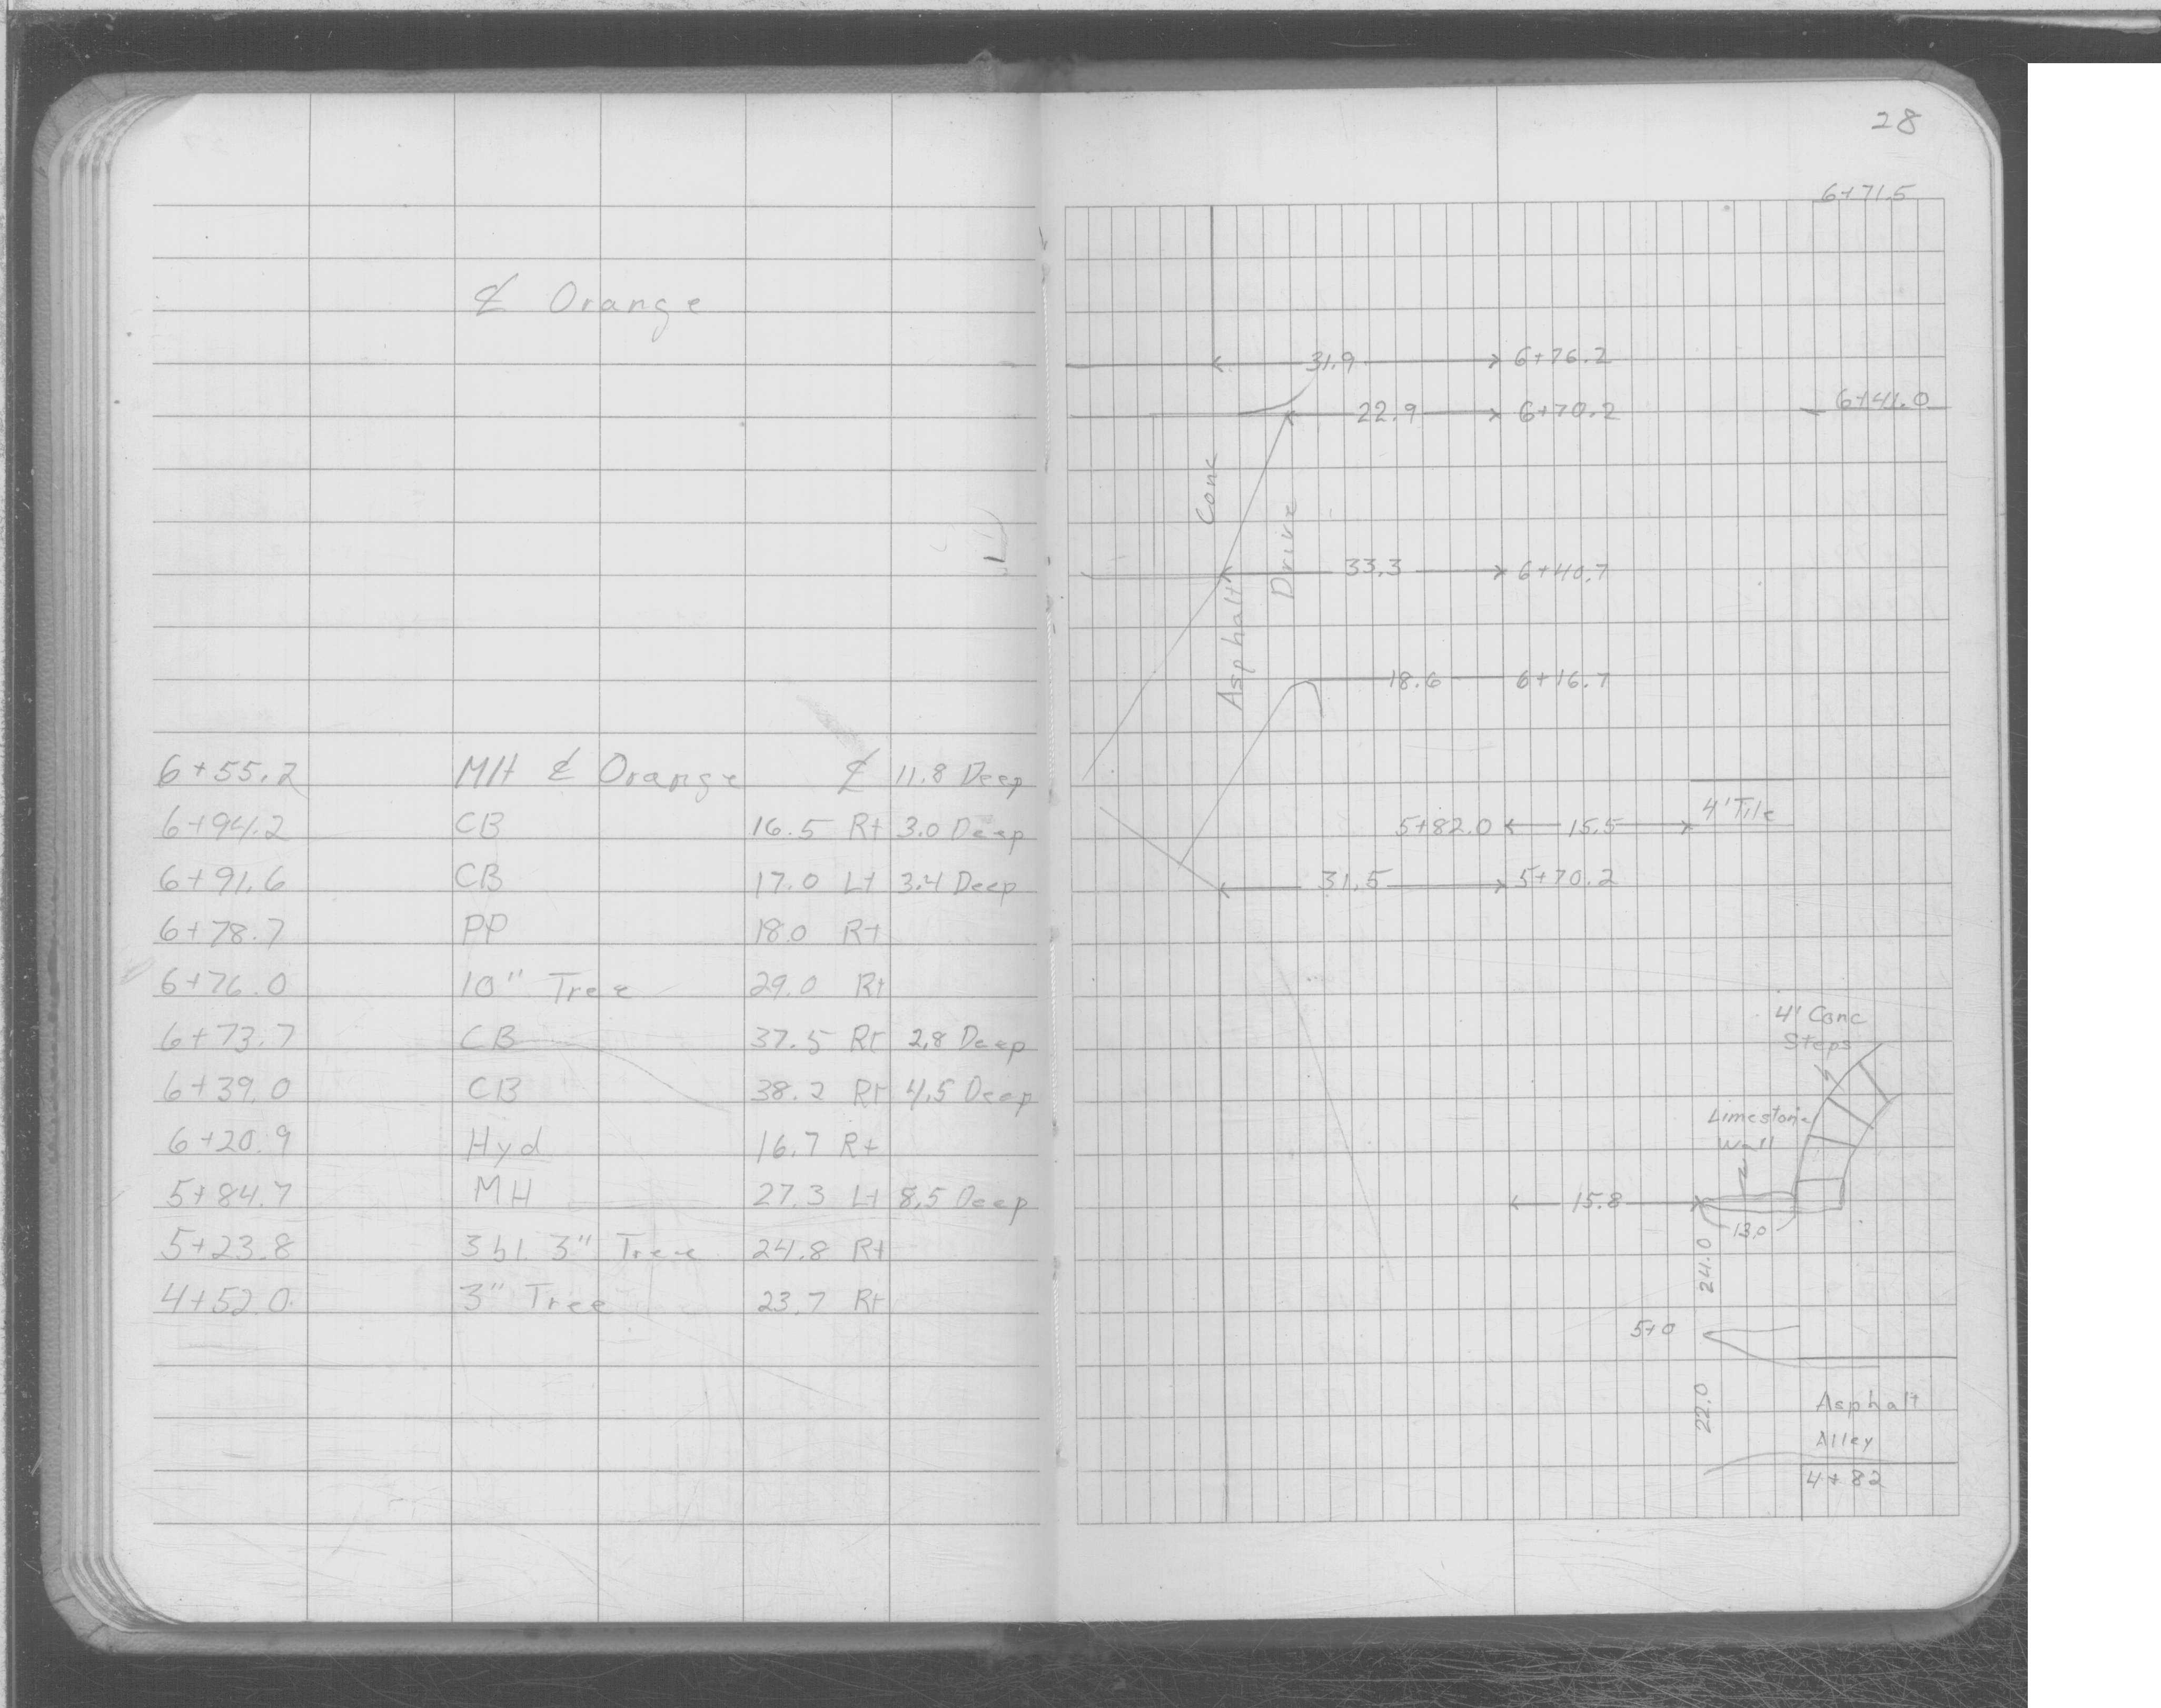 ℄ Orange
6+55.2 MH ℄ Orange ℄ 11.8 Deep
6+94.2 CB 16.5 Rt 3.0 Deep
6+91.6 CB 17.0 Lt 3.4 Deep
6+78.7 PP 18.0 Rt
6+76.0 10" Tree 29.0 Rt
6+73.7 CB 37.5 Rt 2.8 Deep
6+39.0 CB 38.2 Rt 4.5 Deep
6+20.9 Hyd 16.7 Rt
5+84.7 MH 27.3 Lt 8.5 Deep
5+23.8 3 bl. 3" Tree 24.8 Rt
4+52.0 3" Tree 23.7 Rt
28
6+71.5
31.9 6+76.2
22.9 6+70.2 6+41.0
Conc
Asphalt
Drive
33.3 6+40.7
18.6 6+16.7
4' Tile
5+82.0 15.5
31.5 5+70.2
4' Conc
Steps
Limestone
Wall
15.8
13.0
24.0
5+0
22.0
Asphalt
Alley
4+82